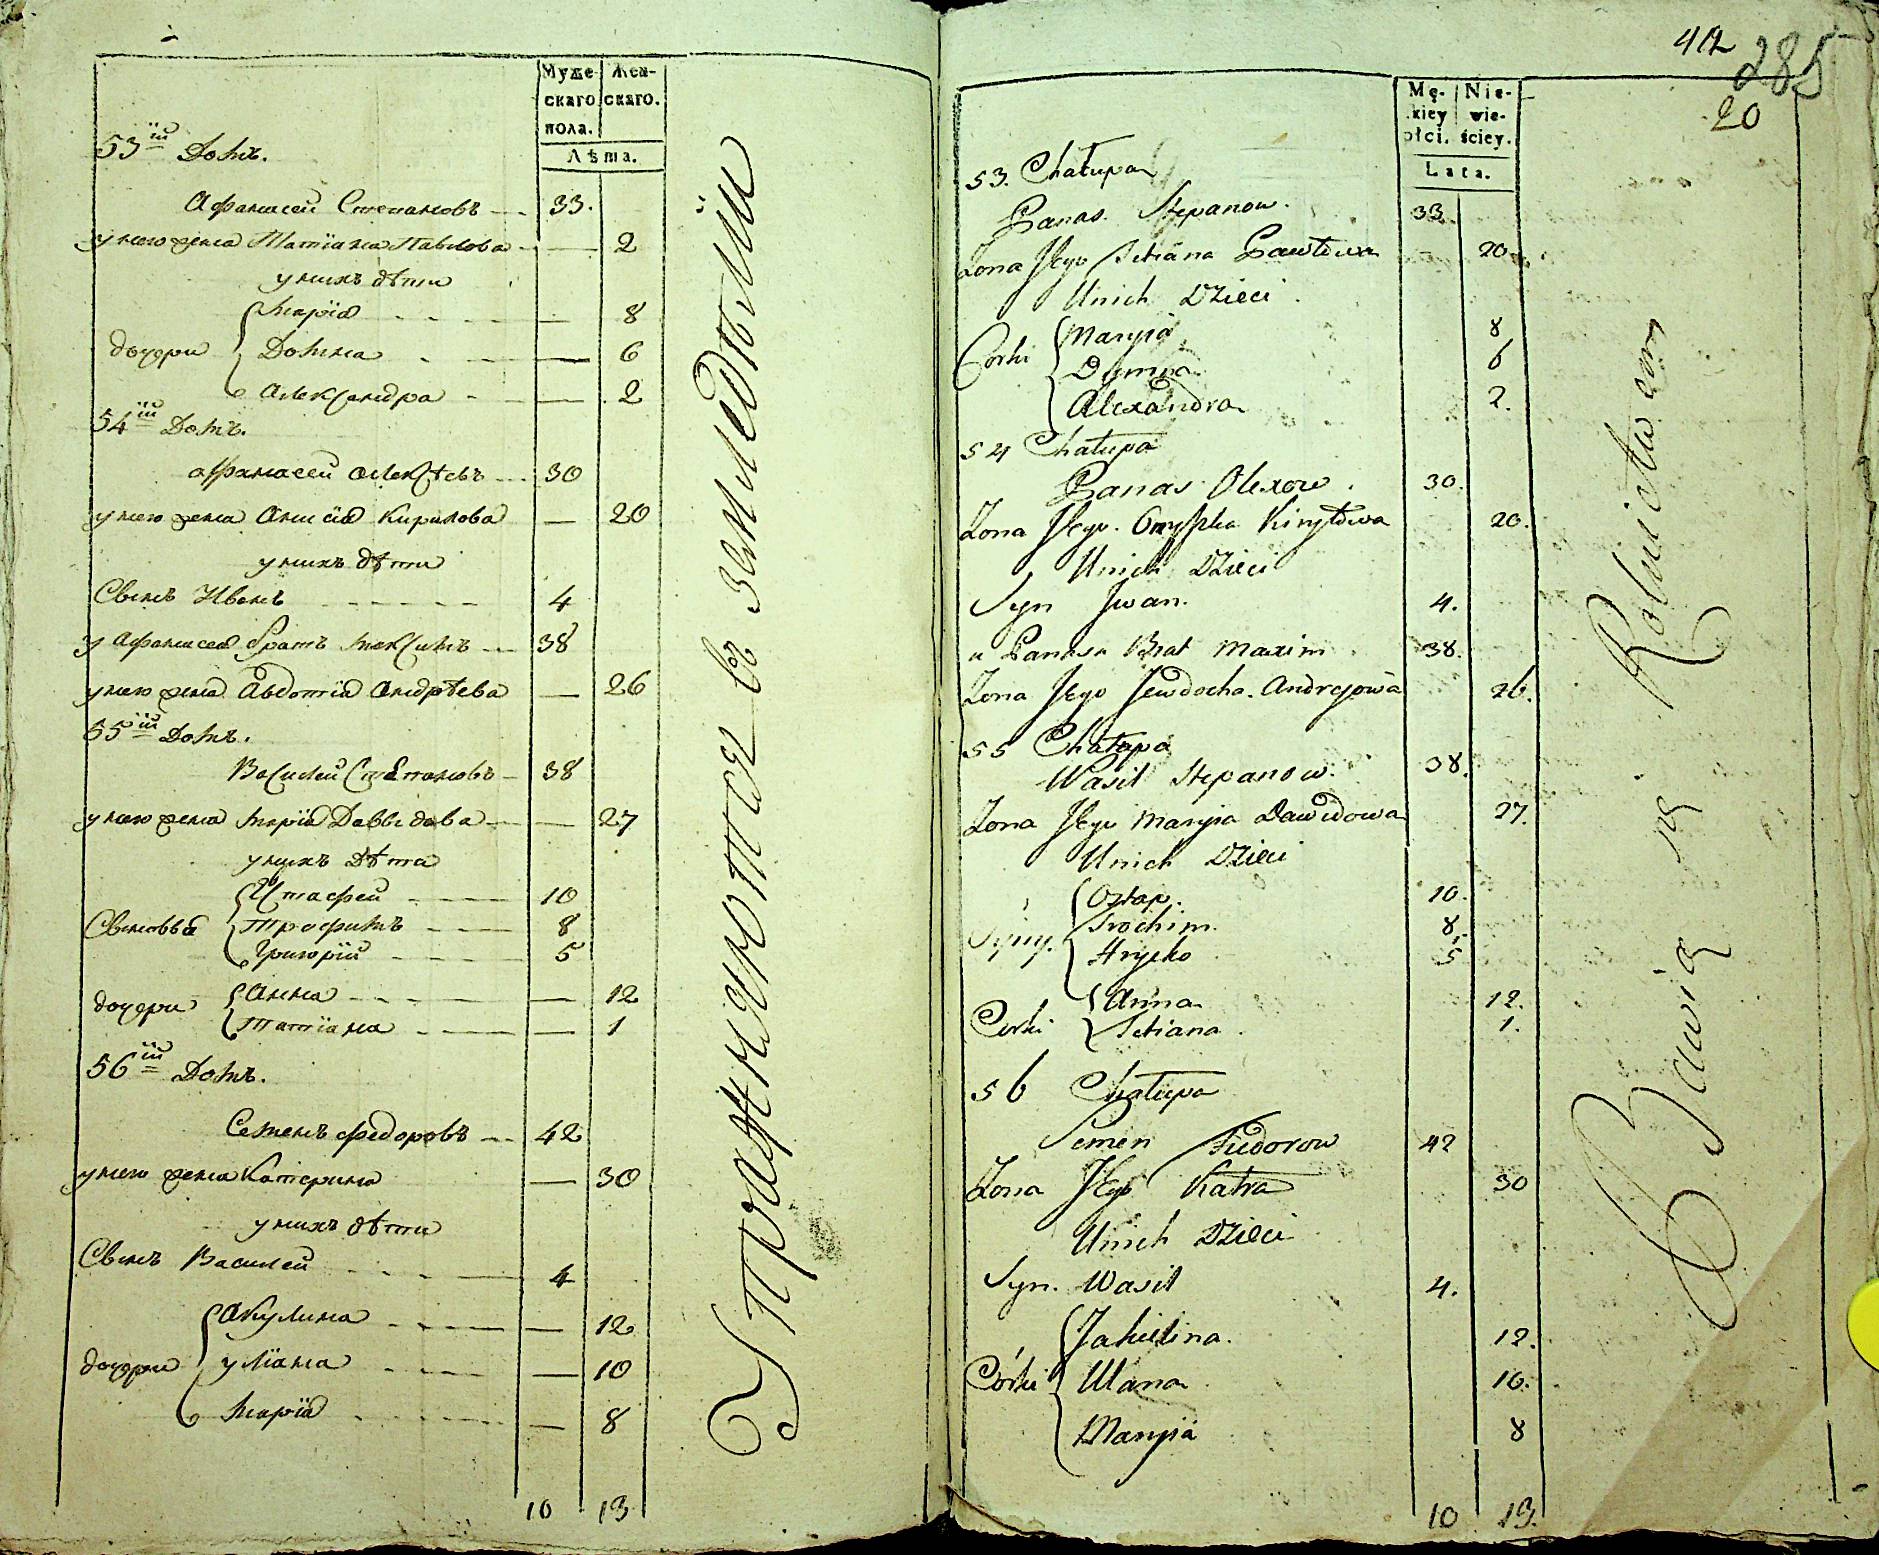 Муже- Жен-
скаго скаго.
пола.
Лѣта.
53ій Домъ.
Афанасей Степановъ 33.
у него жена Татіана Павлова — 2
у нихъ дѣти
дочери Марія — 8
Домна — 6
Александра — 2
54ій Домъ.
Афанасей Алексѣевъ 30
у него жена Анисія Кирилова — 20
у нихъ дѣти
Сынъ Иванъ 4
у Афанасея братъ Максимъ 38
у него жена Авдотія Андрѣева — 26
55ій Домъ.
Василей Степановъ 38
у него жена Марія Давыдова — 27
у нихъ дѣти
Сыновья Устафей 10
Трофимъ 8
Григорій 5
дочери Анна — 12
Татіана — 1
56ій Домъ.
Семенъ Федоровъ 42
у него жена Катерина — 30
у нихъ дѣти
Сынъ Василей 4
дочери Акулина — 12
Уліана — 10
Марія — 8
10 13
Упражняются въ земледѣліи
412 285
20
Mę- Nie-
kiey wie-
płci. ściey.
Lata.
53. Chałupa
Panas Stepanow. 33.
Zona Jego Tetiana Pawłowa 20.
Unich Dzieci
Corki Maryia 8
Domna 6
Alexandra 2.
54 Chałupa
Panas Olexow. 30.
Zona Jego Kiryłowa 20.
Unich Dzieci
Syn Jwan. 4.
u Panasa Brat Maxim 38.
Zona Jego Jewdocha Andrejowa 26.
55 Chałupa
Wasil Stepanow. 38.
Zona Jego Maryia Dawidowa 27.
Unich Dzieci
Syny. Ostap. 10.
Trochim. 8.
Hryćko 5
Corki Anna 12.
Tetiana 1.
56 Chałupa
Semen Fiedorow 42
Zona Jego Katra 30
Unich Dzieci
Syn. Wasil 4.
Córki Jakulina. 12.
Ulana 10.
Maryia 8
10 13.
Bawią się Rolnictwem